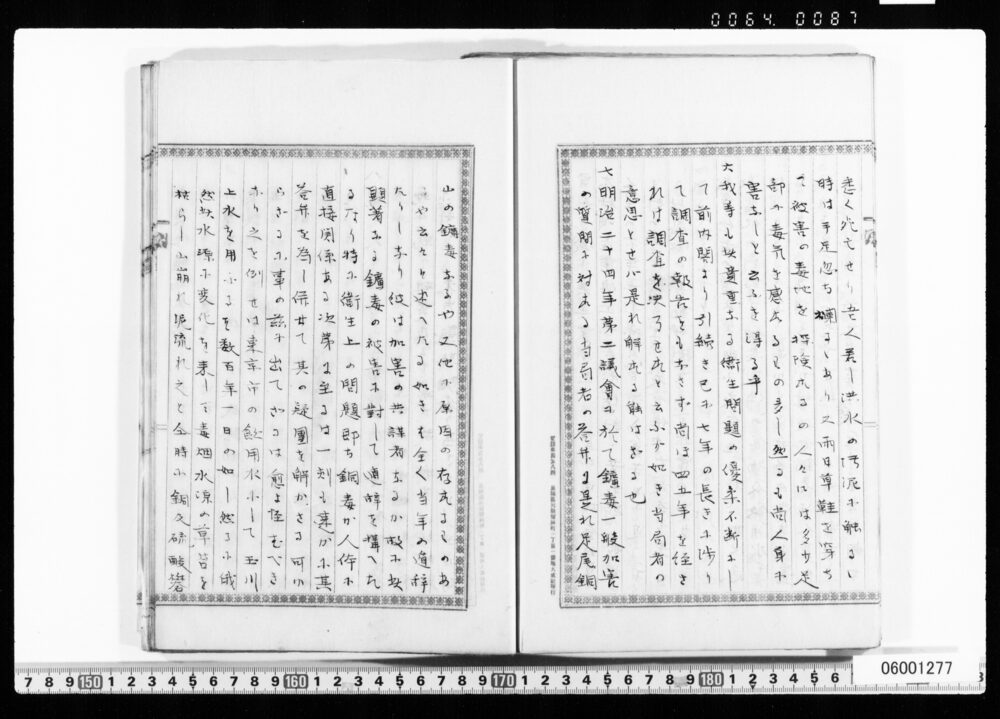 0064 0087
悉く死亡せり老人若し洪水の汚泥に触るゝ
時は手足忽ち爛るゝあり又雨日草鞋を穿ち
て被害の毒地を探険するの人々には多少足
部に毒気を感するもの多し然るも尚人身に
害なしと云ふを得る乎
六我等も此貴重なる衛生問題の優柔不断にし
て前内閣より引続き已に七年の長きに渉り
て調査の報告をもなさず尚ほ四五年を経さ
れは調査を決了せすと云ふか如き当局者の
意思とせハ是れ解する能はざる也
七明治二十四年第二議會に於て鑛毒一般加害
の質問に対する当局者の答弁は是れ足尾銅
山の鑛毒なるや又他に原因の存するものあ
るや云々と述へたる如きは全く当年の遁辞
たりしなり彼は加害の共謀者なるか故に此
顕著なる鑛毒の被害に對して遁辞を構へた
るなり特に衛生上の問題即ち銅毒か人体に
直接関係ある次第に至るは一刻も棄か
答弁を為し併せて其の疑團を解かさる可か
らさるに事の茲に出てさるは愈よ怪むべき
なり之を例せは東京市の飲用水にして玉川
上水を用ふるを数百年一日の如し然るに俄
然此水源に変化を来して毒烟水源の草苔を
枯らし山崩れ泥流れ之と同時に銅又硫酸礬
06001277
7 8 9 150 1 2 3 4 5 6 7 8 9 160 1 2 3 4 5 6 7 8 9 170 1 2 3 4 5 6 7 8 9 180 1 2 3 4 5 6